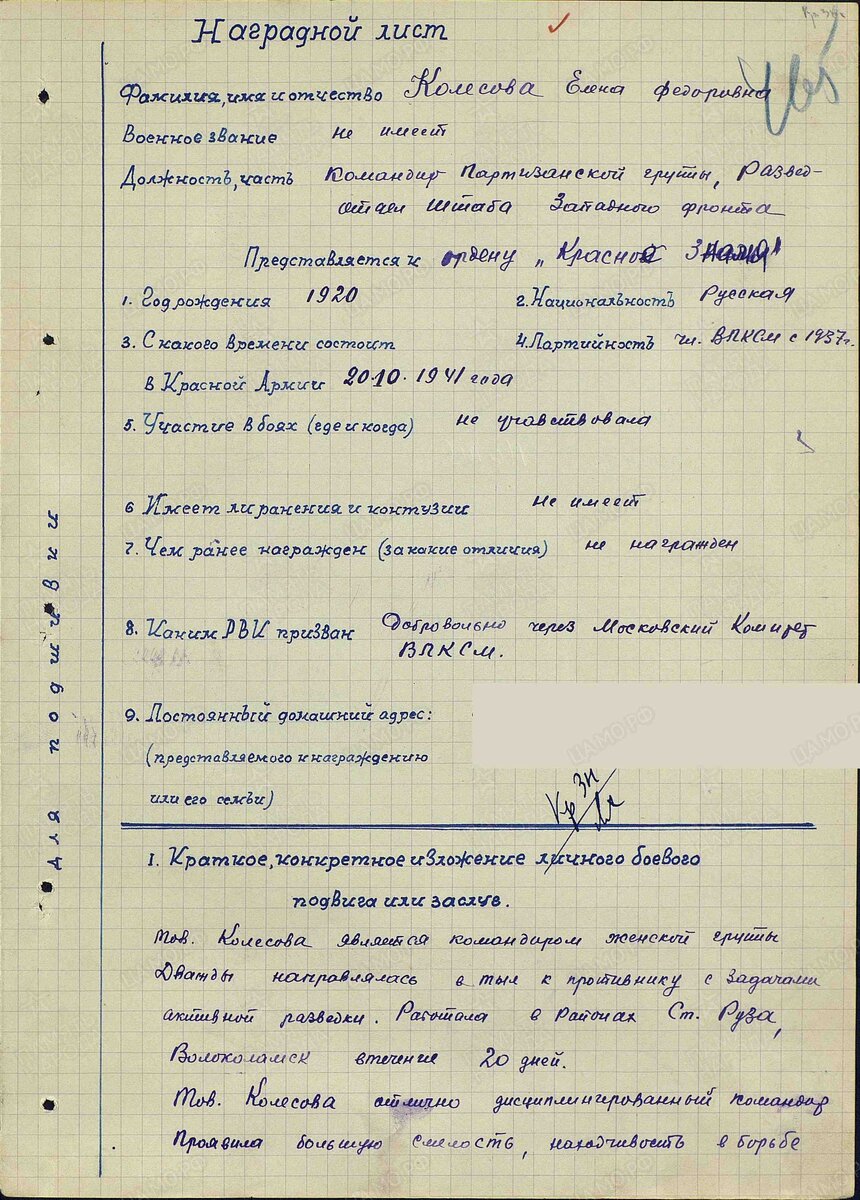 Наградной лист
Фамилия, имя и отчество Колесова Елена Федоровна
Военное звание не имеет
Должность, часть Командир Партизанской группы, Развед-
отдел штаба Западного фронта
Представляется к ордену „Красное Знамя"
1. Год рождения 1920
2. Национальность Русская
3. С какого времени состоит
4. Партийность чл. ВЛКСМ с 1937 г.
в Красной Армии 20.10.1941 года
5. Участие в боях (где и когда) не учавствовала
6 Имеет ли ранения и контузии не имеет
7. Чем ранее награжден (за какие отличия) не награжден
8. Каким РВК призван Добровольно через Московский Комитет
ВЛКСМ.
9. Постоянный домашний адрес:
(представляемого к награждению
или его семьи)
Кр Зн
Для подшивки
I. Краткое, конкретное изложение личного боевого
подвига или заслуг.
Тов. Колесова является командиром женской группы
Дважды направлялась в тыл к противнику с задачами
активной разведки. Работала в районах Ст. Руза,
Волоколамск втечение 20 дней.
Тов. Колесова отлично дисциплинированный командир
Проявила большую смелость, находчивость в борьбе